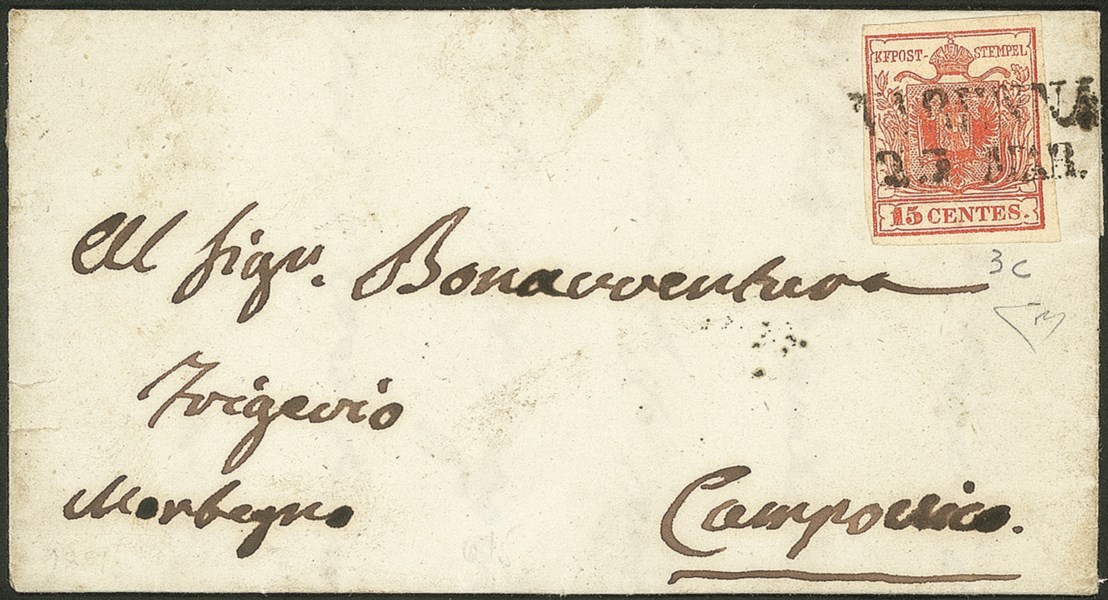 KKPOST-STEMPEL
15 CENTES.
23 MAR.
3 c
Al Sigr. Bonavventura
Trigevio
Morbegno
Campovico.